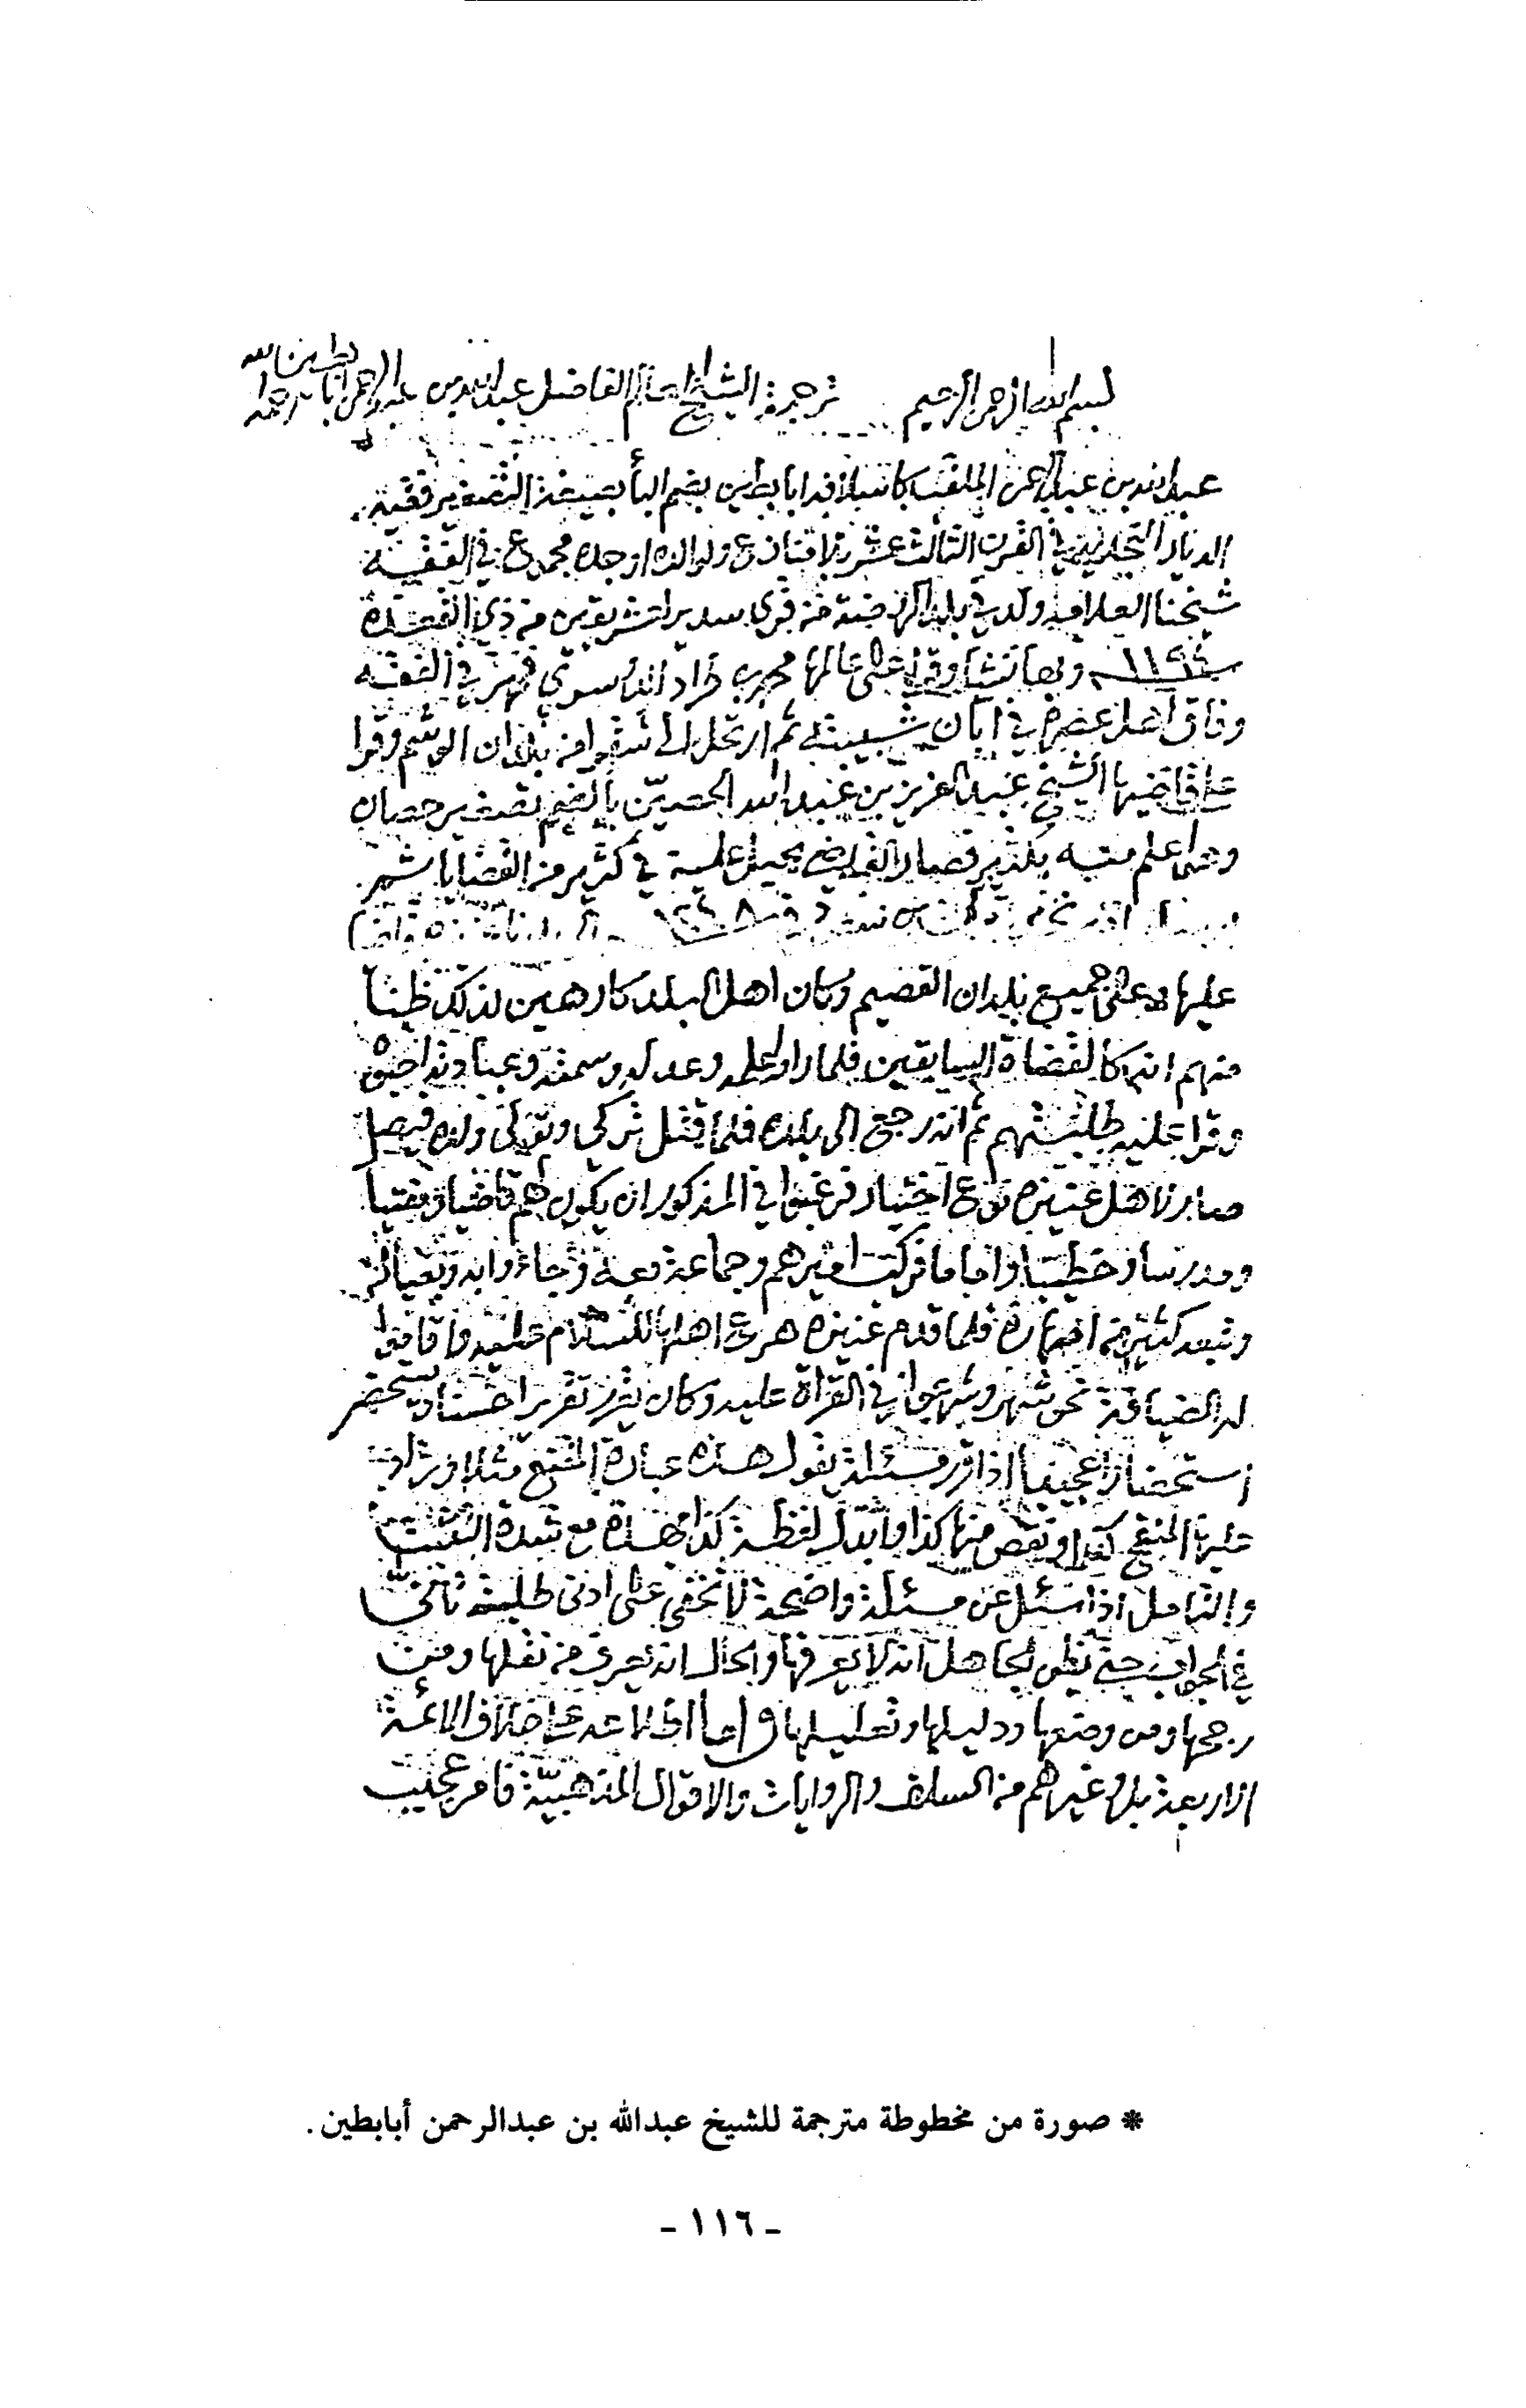 بسم الله الرحمن الرحيم ترجمة الشيخ العالم الفاضل عبدالله بن عبدالرحمن ابابطين رحمه الله
عبدالله بن عبدالرحمن الملقب كاسلافه ابابطين بضم البأ بصيغة التصغير فقيه
الديار النجدية في القرن الثالث عشر بلا منازع ولوالده او جده مجموع في الفقه
شيخنا العلامة ولد في بلد الروضة من قرى سدير لعشر بقين من ذي القعدة
سنة ١١٩٤ وبها نشأ وقرا على عالمها محمد بن طراد الدوسري فمهر في الفقه
وفاق اهل عصره في ابان شبيبته ثم ارتحل الى شقرا من بلدان الوشم وقرا
على قاضيها الشيخ عبدالعزيز بن عبدالله الحصين بالضم تصغير حصان
بكثير فصار القاضي يحيل عليه في كثير من القضايا
١٢٤٨
عليها وعلى جميع بلدان القصيم وكان اهل البلد كارهين لذلك ظنا
منهم انه كالقضاة السابقين فلما راوا علمه وعدله وسمته وعبادته احبوه
وقرا عليه طلبتهم ثم انه رجع الى بلاده فلما قتل تركي وتولى ولده فيصل
صار لاهل عنيزه نوع اختيار فرغبوا في المذكور ان يكون لهم قاضيا ومفتيا
ومدرسا وخطيبا واماما فركب اميرهم وجماعة معه وجاءوا به وبعياله
وبعد كثير من فلما قدم عنيزه هرع اهلها للسلام عليه واقاموا
له الضيافة نحو شهر وشرعوا في القراة عليه وكان يقرر تقريرا حسنا ويستحضر
استحضارا عجيبا اذا قرر مسئلة يقول هذه عبارة المقنع مثلا وزاد
عليها المنقح كذا ونقص منها كذا وابدل لفظة كذا بهذه مع شدة التثبت
والتامل اذا سئل عن مسئلة واضحة لا تخفى على ادنى طلبته تأنى
في الجواب حتى يظن الجاهل انه لا يعرفها والحال انه يعرف من نقلها ومن
رجحها ومن وضعها ودليلها وتعليلها واما اطلاعه على خلاف الائمة
الاربعة بل وغيرهم من السلف والروايات والاقوال المذهبية فامر عجيب
* صورة من مخطوطة مترجمة للشيخ عبدالله بن عبدالرحمن أبابطين.
- ١١٦ -